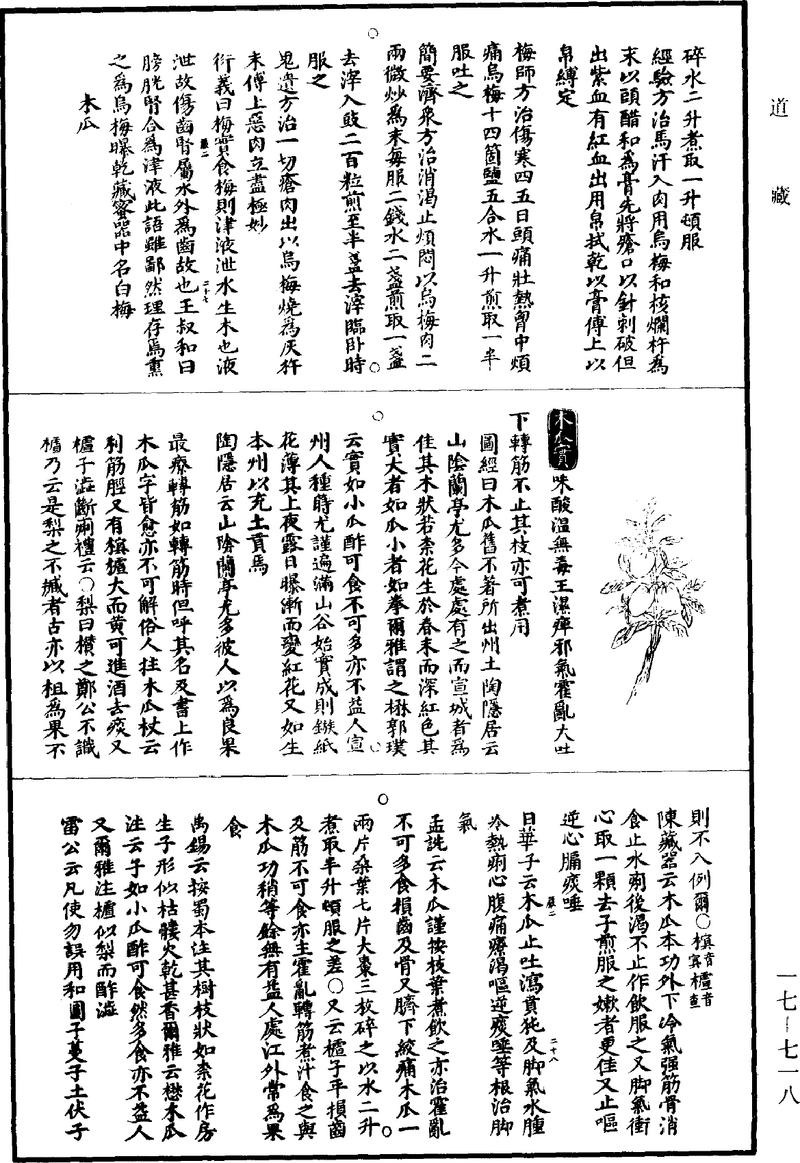 道藏
碎水二升煮取一升頓服
經驗方治馬汗入肉用烏梅和核爛杵為
末以頭醋和為膏先將瘡口以針刺破但
出紫血有紅血出用帛拭乾以膏傅上以
帛縛定
梅師方治傷寒四五日頭痛壯熱胷中煩
痛烏梅十四箇鹽五合水一升煎取一半
服吐之
簡要濟衆方治消渴止煩悶以烏梅肉二
兩微炒為末每服二錢水二盞煎取一盞
去滓入豉二百粒煎至半盞去滓臨卧時
服之
鬼遺方治一切瘡肉出以烏梅燒為灰杵
末傅上惡肉立盡極妙
衍義曰梅實食梅則津液泄水生木也液
泄故傷齒腎屬水外為齒故也王叔和曰
膀胱腎合為津液此語雖鄙然理存焉熏
之為烏梅曝乾藏蜜器中名白梅
木瓜
木瓜實味酸溫無毒主濕痺邪氣霍亂大吐
下轉筋不止其枝亦可煮用
圖經曰木瓜舊不著所出州土陶隱居云
山陰蘭亭尤多今處處有之而宣城者為
佳其木狀若柰花生於春末而深紅色其
實大者如瓜小者如拳爾雅謂之楙郭璞
云實如小瓜酢可食不可多亦不益人宣
州人種蒔尤謹遍滿山谷始實成則鏃紙
花薄其上夜露日曝漸而變紅花又如生
本州以充土貢焉
陶隱居云山陰蘭亭尤多彼人以為良果
最療轉筋如轉筋時但呼其名及書上作
木瓜字皆愈亦不可解俗人拄木瓜杖云
利筋脛又有榠樝大而黄可進酒去痰又
樝子澁斷痢禮云○梨曰欑之鄭公不識
樝乃云是梨之不臧者古亦以柤為果不
則不入例爾○榠音冥樝音查
陳藏器云木瓜本功外下冷氣强筋骨消
食止水痢後渴不止作飲服之又脚氣衝
心取一顆去子煎服之嫩者更佳又止嘔
逆心膈痰唾
日華子云木瓜止吐瀉賁㹠及脚氣水腫
冷熱痢心腹痛療渴嘔逆痰唾等根治脚
氣
孟詵云木瓜謹按枝葉煮飲之亦治霍亂
不可多食損齒及骨又臍下絞痛木瓜一
兩片桑葉七片大棗三枚碎之以水二升
煮取半升頓服之差○又云樝子平損齒
及筋不可食亦主霍亂轉筋煮汁食之與
木瓜功稍等餘無有益人處江外常為果
食
禹錫云按蜀本注其樹枝狀如柰花作房
生子形似栝䔧火乾甚香爾雅云楙木瓜
注云子如小瓜酢可食然多食亦不益人
又爾雅注樝似梨而酢澁
雷公云凡使勿誤用和圓子蔓子土伏子
一七—七一八